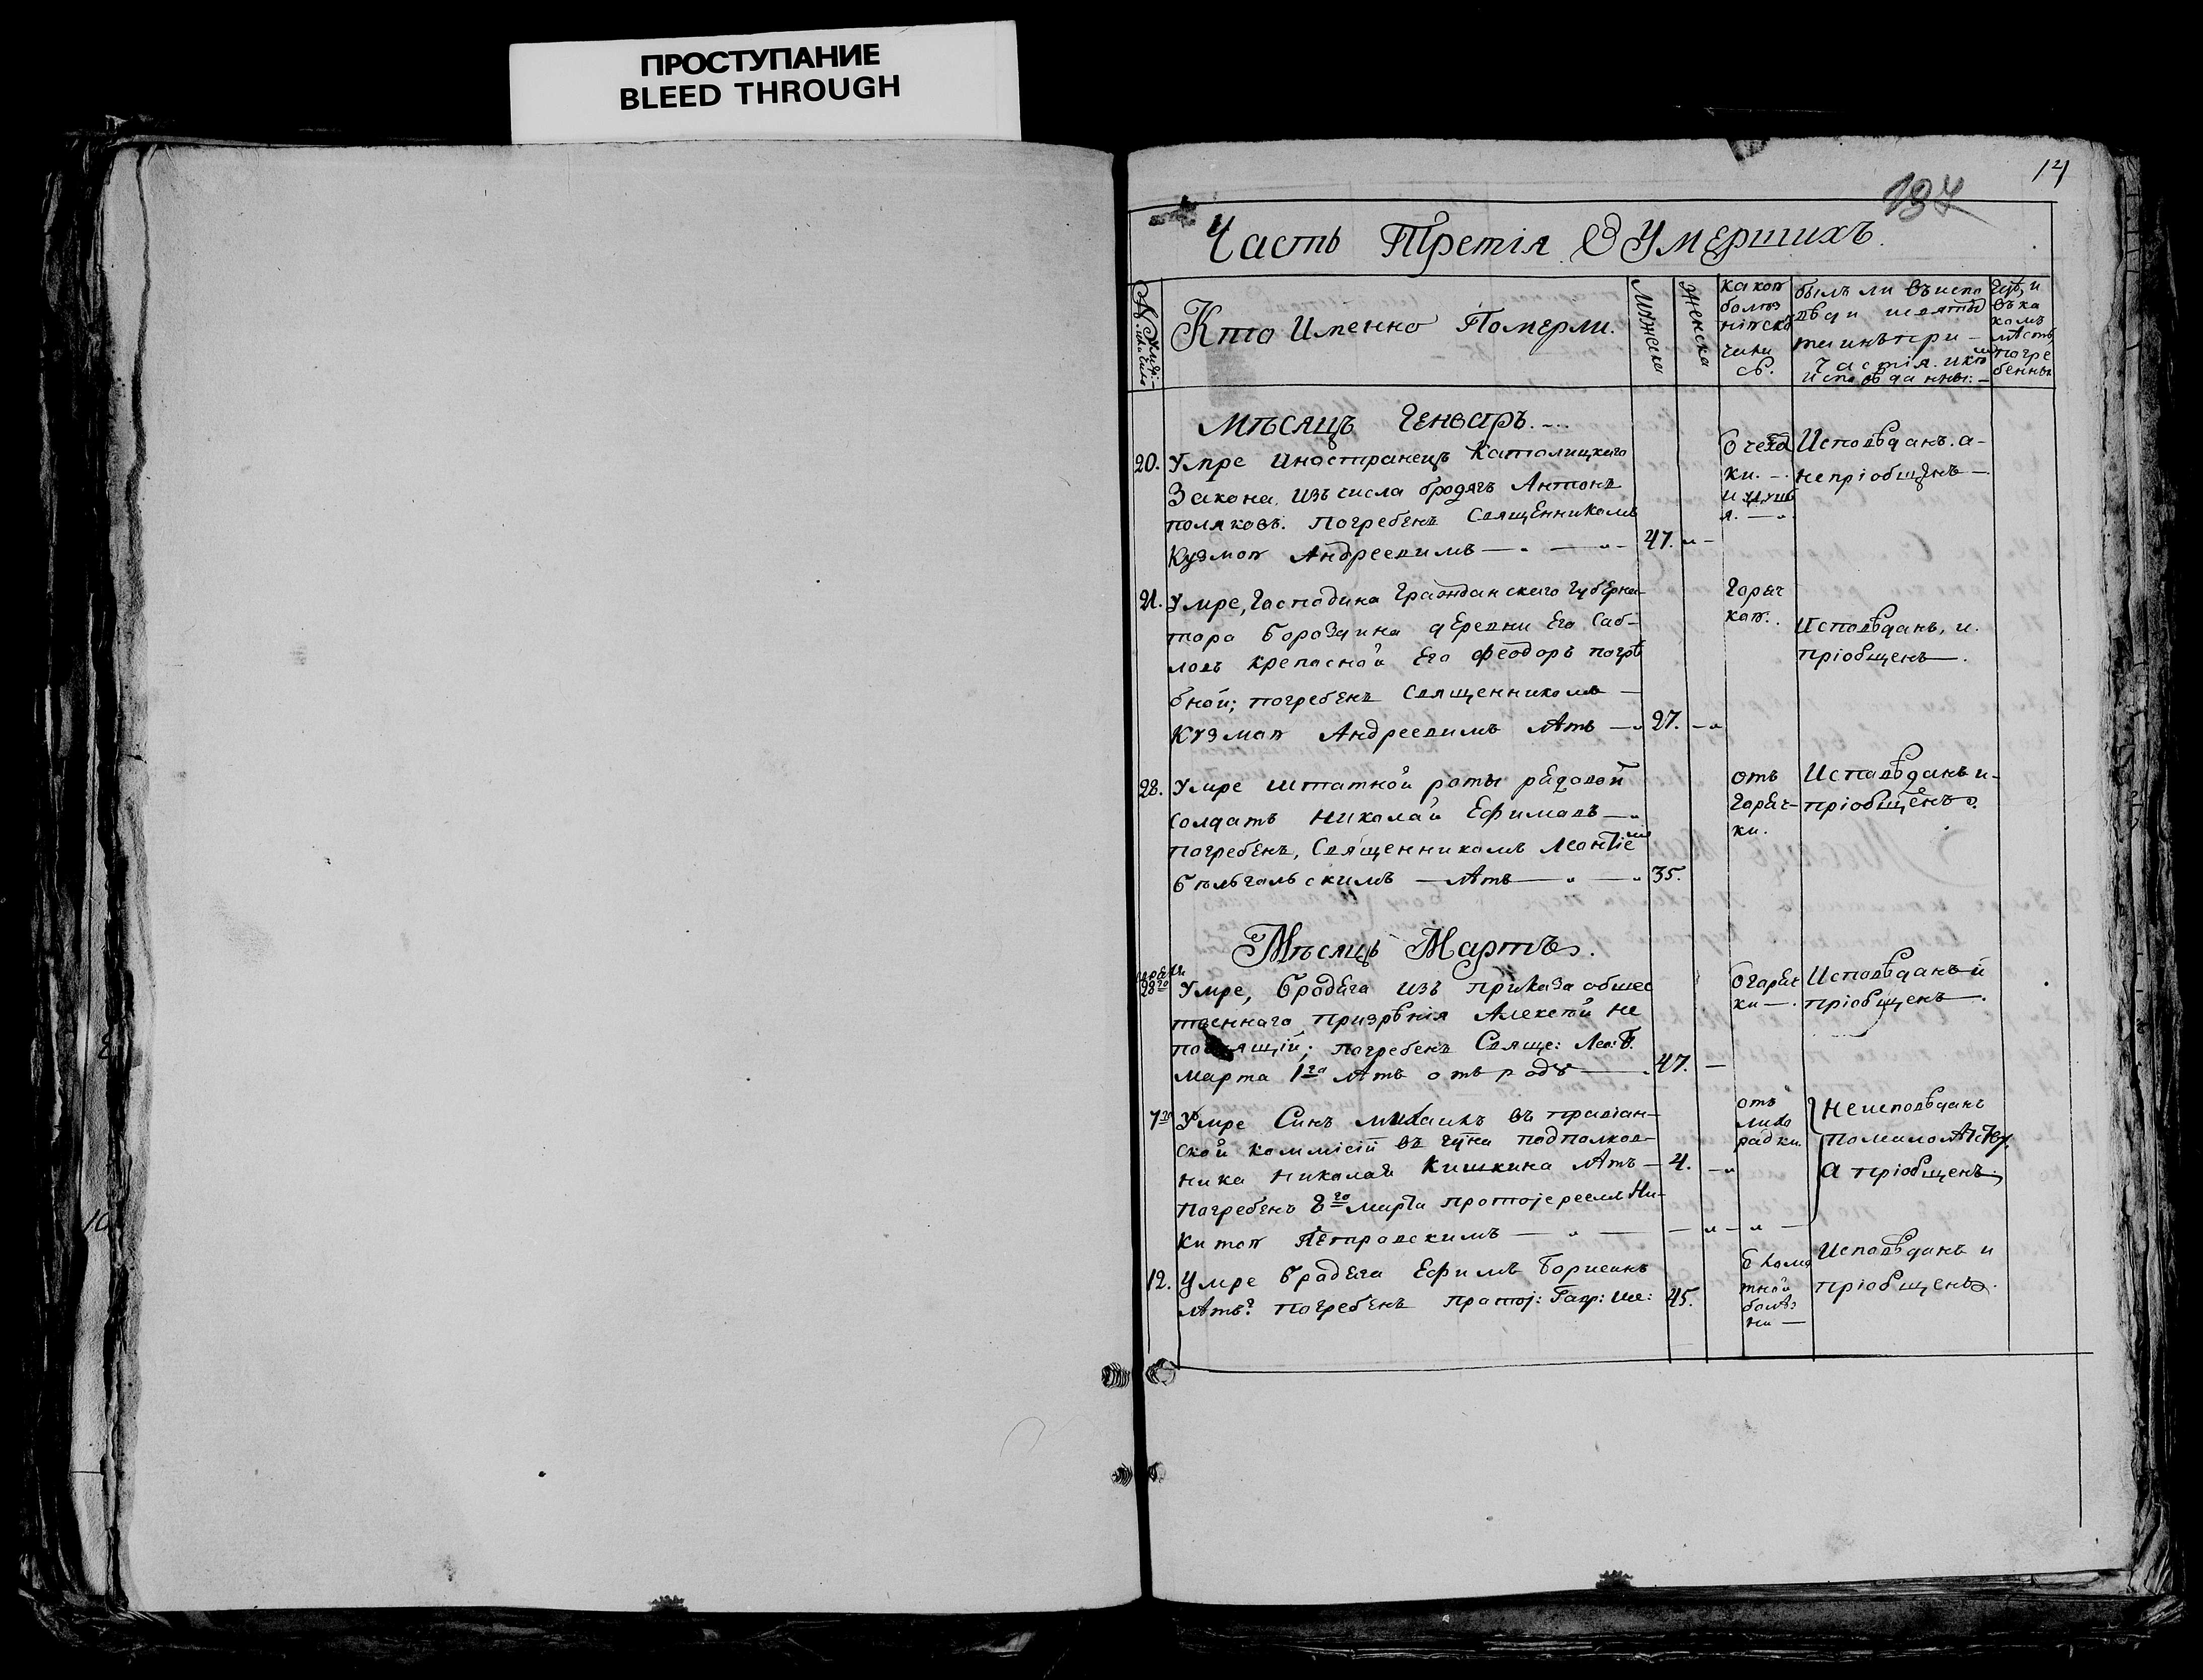 ПРОСТУПАНИЕ
BLEED THROUGH
14
137
Часть Третія О Умершихъ.
Кто Именно Померли.
Мужеска
Женска
какой
болѣз
нію ско
нча
сь.
былъ ли въ испо
вѣди и святы
таинъ при-
частія. и кто
исповѣданны:-
Гдѣ, и
въ ка
комъ
мѣстѣ
погре
бенны
Мѣсяцъ Генварь.
20. Умре Иностранецъ Католицкаго
Закона, изъ числа бродягъ Антонъ
поляковъ. погребенъ Священникомъ
Кузмой Андреевимъ — 47.
о чехо
ки. —
и
Исповѣданъ. а-
непріобщенъ —
21. Умре, Господина Гражданскаго Губерна-
тора Бороздина деревни Его Саб-
ловъ крепосной Его Феодоръ погрѣ
бной; погребенъ Священникомъ —
Кузмой Андреевимъ лѣтъ — 27.
Горяч
кой.
Исповѣданъ, и.
пріобщенъ —.
28. Умре штатной роты рядовой
солдатъ Николай Ефимовъ —
погребенъ, Священникомъ Леонтіе
скимъ — лѣтъ — 35.
отъ
Горяч-
ки.
Исповѣданъ и-
пріобщенъ.
Мѣсяцъ Мартъ.
28го Умре, бродяга изъ приказа общес
твеннаго призрѣнія Алексѣй Не
по ящій; погребенъ Свяще: Лео: Б.
Марта 1го лѣтъ отъ роду — 47. —
о горяч
ки —.
Исповѣданъ й
пріобщенъ —.
7го Умре Синъ михаилъ въ правіан-
ской коммісіи подполков-
ника Николая Кишкина лѣтъ — 4.
Погребенъ 8го марта протоіереем Ни-
китой Петровскимъ —
отъ
лихо
радки.
Неисповѣданъ
по мало лѣтсту,
а пріобщенъ.
12. Умре бродяга Ефимъ Борисинъ
лѣтъ? погребенъ протоі: Гавр: Ше: 45.
тной
болѣз
ни —
Исповѣданъ и
пріобщенъ.